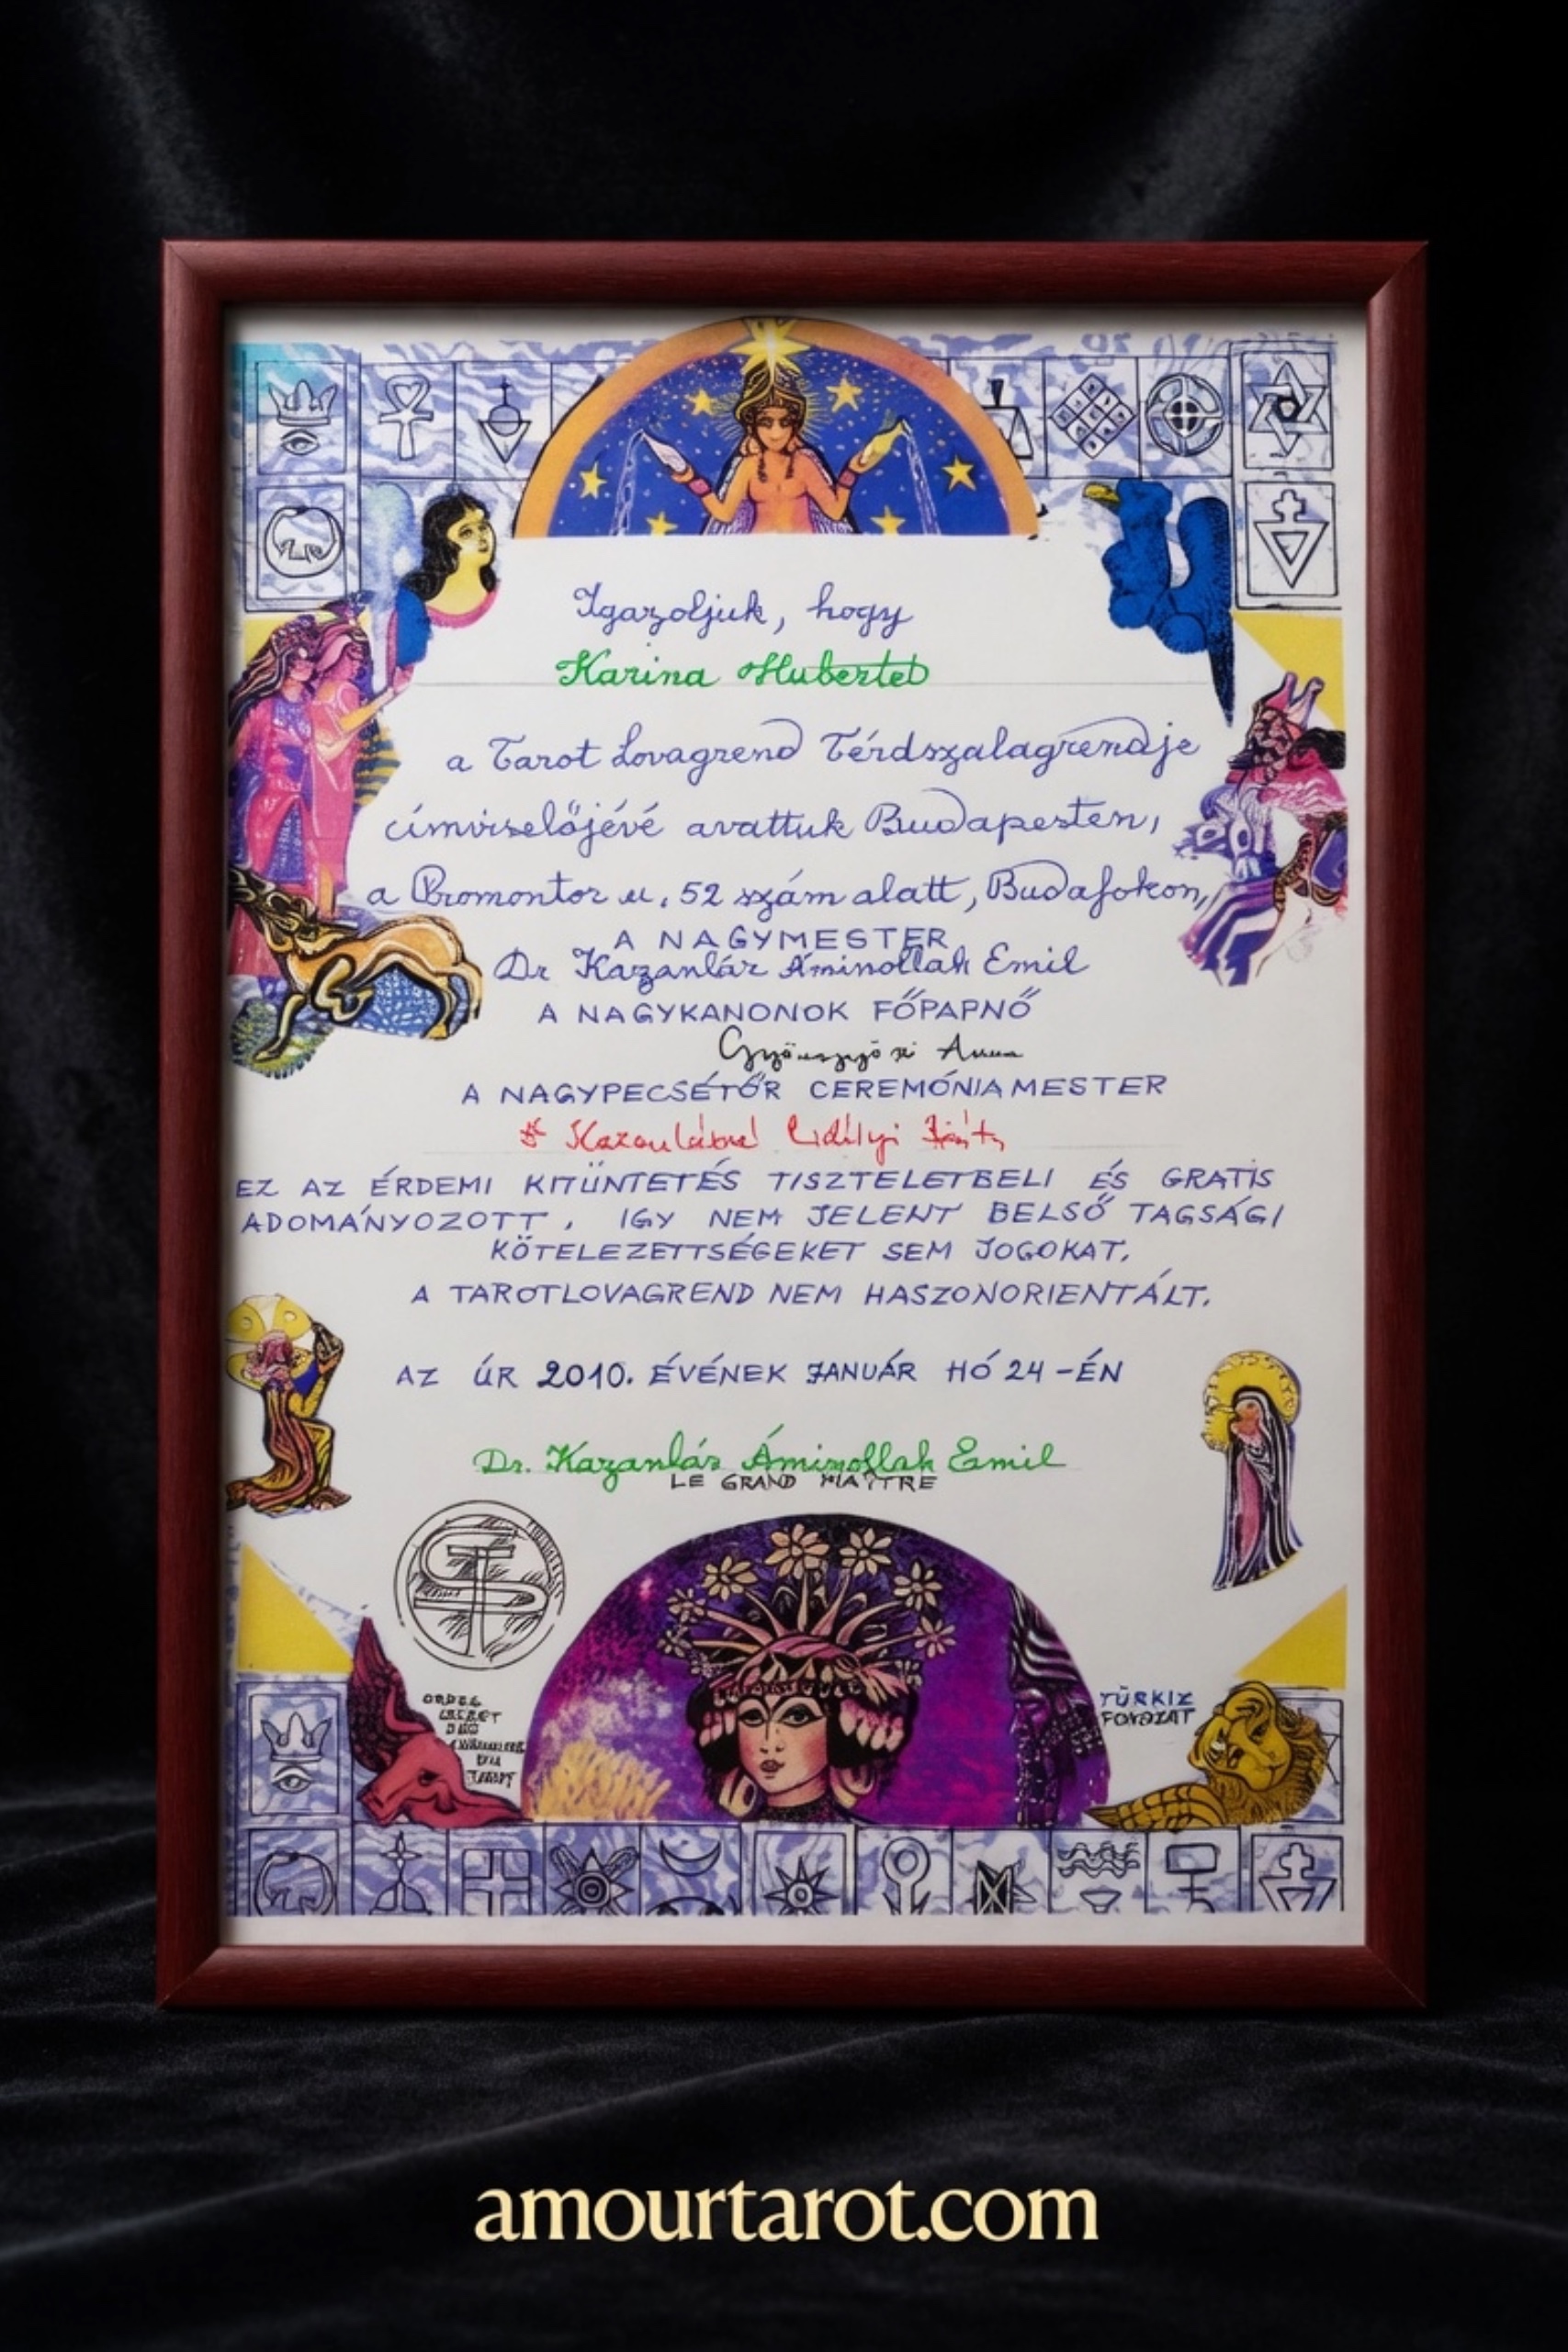 Igazoljuk, hogy
Karina Huberted
a Tarot Lovagrend Térdszalagrendje
címviselőjévé avattuk Budapesten,
a Promontor u. 52 szám alatt, Budafokon,
A NAGYMESTER
Dr Kazanlár Áminollah Emil
A NAGYKANONOK FŐPAPNŐ
Gyöngyösi Anna
A NAGYPECSÉTŐR CEREMÓNIAMESTER
EZ AZ ÉRDEMI KITÜNTETÉS TISZTELETBELI ÉS GRATIS
ADOMÁNYOZOTT, IGY NEM JELENT BELSŐ TAGSÁGI
KÖTELEZETTSÉGEKET SEM JOGOKAT.
A TAROTLOVAGREND NEM HASZONORIENTÁLT.
AZ ÚR 2010. ÉVÉNEK JANUÁR HÓ 24-ÉN
Dr. Kazanlár Áminollah Emil
LE GRAND MAÎTRE
TÜRKIZ
amourtarot.com